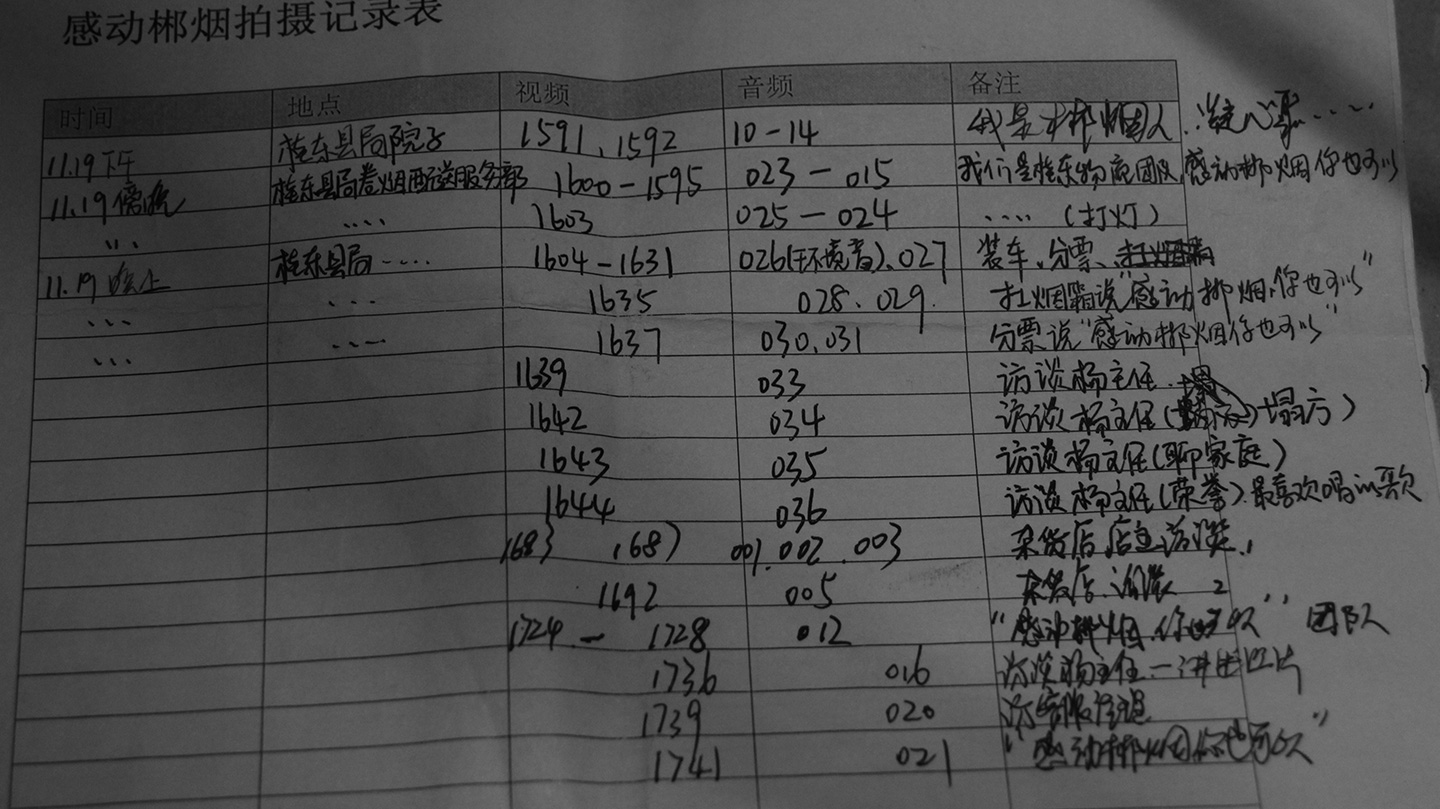 感动郴烟拍摄记录表
时间 地点 视频 音频 备注
11.19下午 桂东县局院子 1591、1592 10-14 我是郴烟人
11.19傍晚 桂东县局卷烟配送服务部 1600-1595 023-015 我们是桂东物流团队,感动郴烟你也可以
.... 1603 025-024 ....(打灯)
11.19晚上 桂东县局.... 1604-1631 026(环境音)、027 装车、分票、
... ... 1635 028.029. 扛烟箱说"感动郴烟,你也可以"
... .... 1637 030.031 分票说"感动郴烟你也可以"
1639 033 访谈杨主任
1642 034 访谈杨主任(塌方)
1643 035 访谈杨主任(聊家庭)
1644 036 访谈杨主任(荣誉)最喜欢唱的歌
1683 1687 001.002.003 杂货店店主访谈1
1692 005 杂货店访谈2
1724-1728 012 "感动郴烟.你也可以" 团队
1736 016 访谈杨主任一讲
1739 020 访客服经理
1741 021 "感动郴烟你也可以"